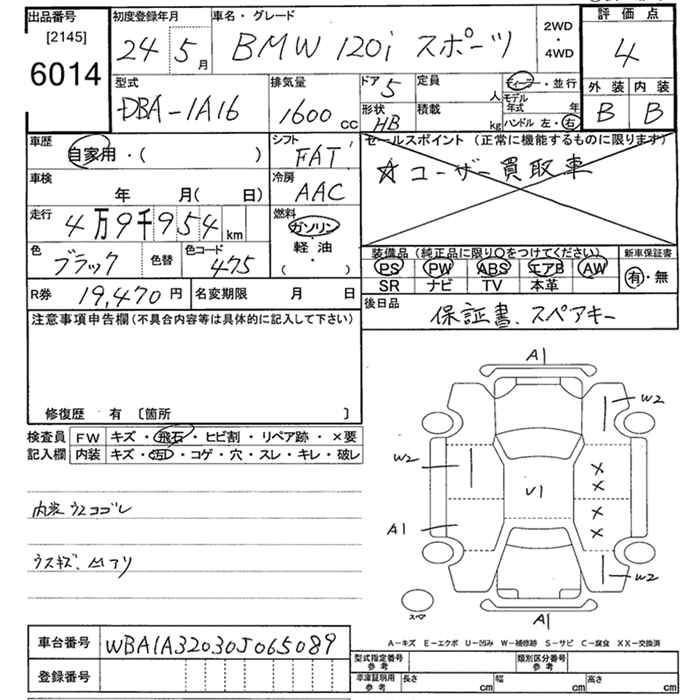 出品番号 初度登録年月 車名・グレード 2WD・4WD 評価点
[2145]
6014
24 5月 BMW 120i スポーツ 4
型式 排気量 ドア 5 定員 人 ディーラー・並行
DBA-1A16 1600cc 形状 HB 積載 kg モデル年式 年
ハンドル 左・右
外装 内装
B B
車歴 自家用・( ) シフト FAT セールスポイント (正常に機能するものに限ります)
☆ユーザー買取車
車検 年 月( 日) 冷房 AAC
走行 4万9千954km 燃料 ガソリン 軽油 ( ・ )
色 ブラック 色替 色コード 475
装備品 (純正品に限り○をつけてください) 新車保証書
PS PW ABS エアB AW 有・無
SR ナビ TV 本革
R券 19,470円 名変期限 月 日 後日品 保証書、スペアキー
注意事項申告欄(不具合内容等は具体的に記入して下さい)
修復歴 有 〔箇所 〕
検査員記入欄 FW キズ・飛石・ヒビ割・リペア跡・×要
内装 キズ・汚・コゲ・穴・スレ・キレ・破レ
内装ウスヨゴレ
ウスキズ、凹アリ
A1
W2
W2
X
X
U1
X
A1
X
W2
スペア
A1
A-キズ E-エクボ U-凹み W-補修跡 S-サビ C-腐食 XX-交換済
車台番号 WBA1A32030J065089
登録番号
型式指定番号参考 類別区分番号参考
車庫証明用参考 長さ cm 幅 cm 高さ cm